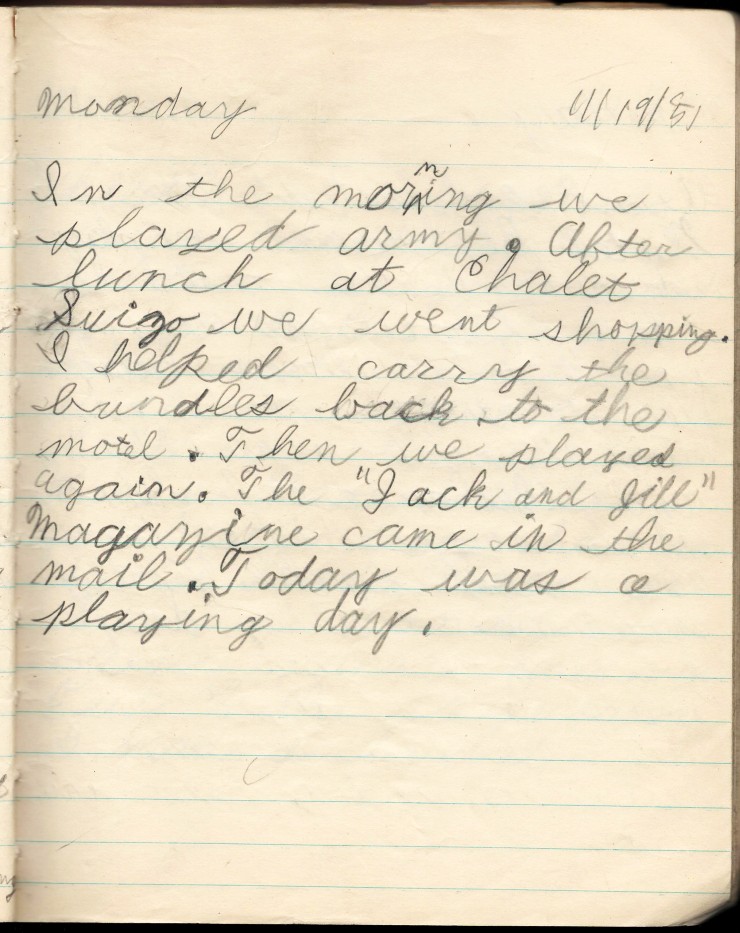 Monday 11/19/51
In the morning we
played army. After
lunch at Chalet
Suizo we went shopping.
I helped carry the
bundles back to the
motel. Then we played
again. The "Jack and Jill"
Magazine came in the
mail. Today was a
playing day.